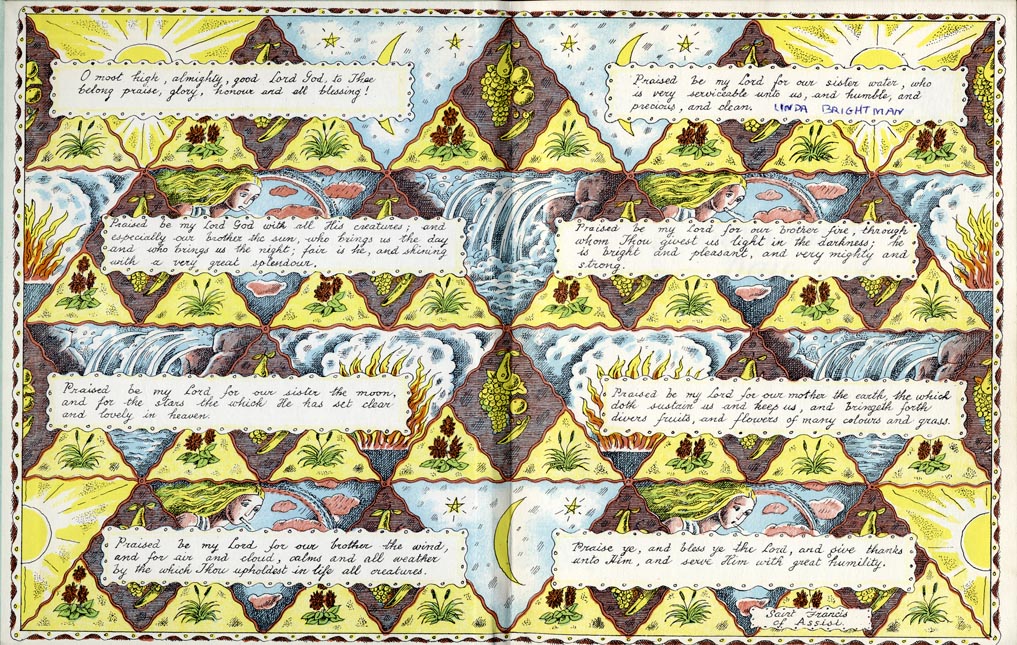 O most high, almighty, good Lord God, to Thee
belong praise, glory, honour and all blessing!
Praised be my Lord God with all His creatures; and
especially our brother the sun, who brings us the day
and who brings us the night; fair is he, and shining
with a very great splendour.
Praised be my Lord for our sister the moon,
and for the stars the which He has set clear
and lovely in heaven.
Praised be my Lord for our brother the wind,
and for air and cloud, calms and all weather
by the which Thou upholdest in life all creatures.
Praised be my Lord for our sister water, who
is very serviceable unto us, and humble, and
precious, and clean. LINDA BRIGHTMAN
Praised be my Lord for our brother fire, through
whom Thou givest us light in the darkness; he
is bright and pleasant, and very mighty and
strong.
Praised be my Lord for our mother the earth, the which
doth sustain us and keep us, and bringeth forth
divers fruits, and flowers of many colours and grass.
Praise ye, and bless ye the Lord, and give thanks
unto Him, and serve Him with great humility.
Saint Francis
of Assisi.